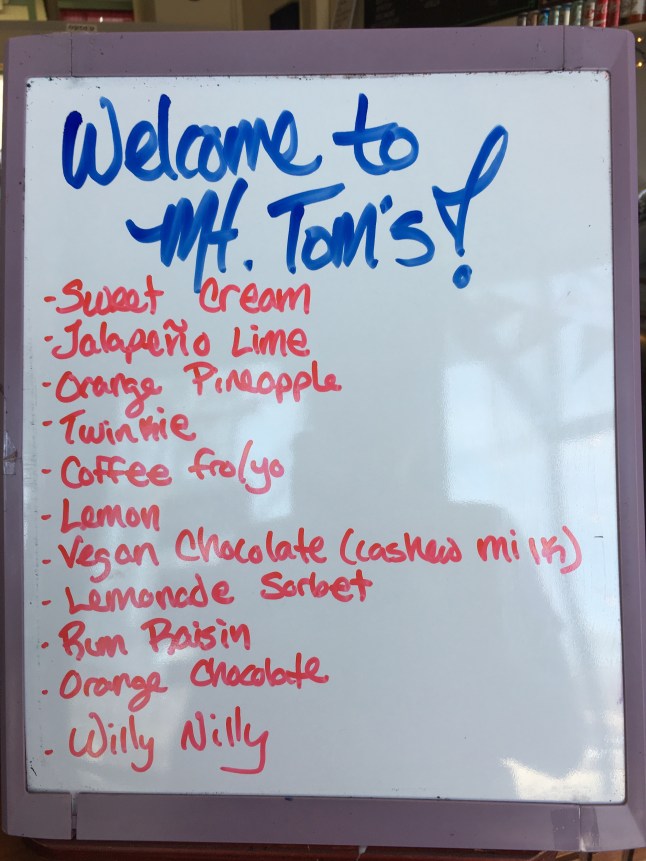 Welcome to
Mt. Tom's!
-Sweet Cream
-Jalapeño Lime
-Orange Pineapple
-Twinkie
-Coffee fro/yo
-Lemon
-Vegan Chocolate (cashew milk)
-Lemonade Sorbet
-Rum Raisin
-Orange Chocolate
-Willy Nilly